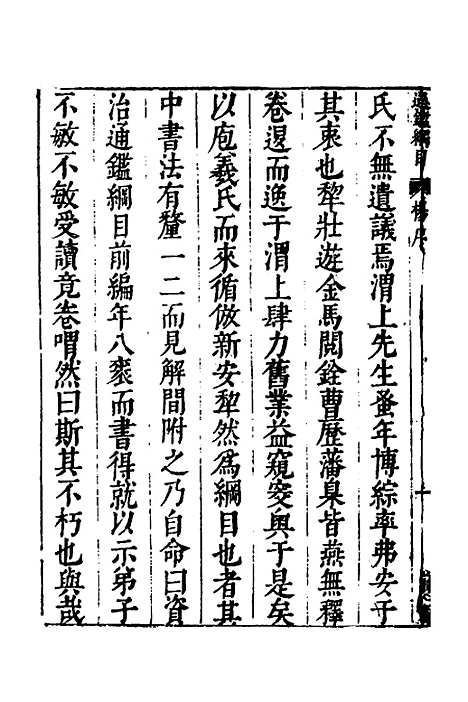 通鑑綱目 楊序 十
氏不無遺議焉渭上先生蚤年博綜率弗安于
其衷也犂壯遊金馬閱銓曹歷藩臬皆燕無釋
卷還而逸于渭上肆力舊業益窺窔奧于是矣
以庖羲氏而來循倣新安犂然爲綱目也者其
中書法有釐一二而見解間附之乃自命曰資
治通鑑綱目前編年八袠而書得就以示弟子
不敏不敏受讀竟卷喟然曰斯其不朽也與哉